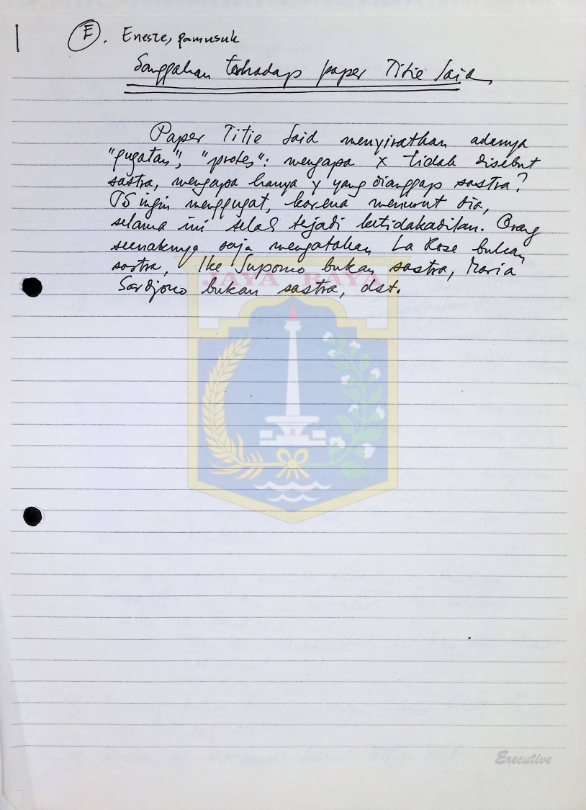 E. Eneste, pamusuk
Sanggahan terhadap paper Titie Said
Paper Titie Said menyiratkan adanya
"gugatan", "protes": mengapa x tidak disebut
sastra, mengapa hanya y yang dianggap sastra?
TS ingin menggugat, karena menurut dia,
selama ini telah terjadi ketidakadilan. Orang
seenaknya saja mengatakan La Rose bukan
sastra, Ike Supomo bukan sastra, Maria
Sardjono bukan sastra, dst.
JAYA RAYA
Executive